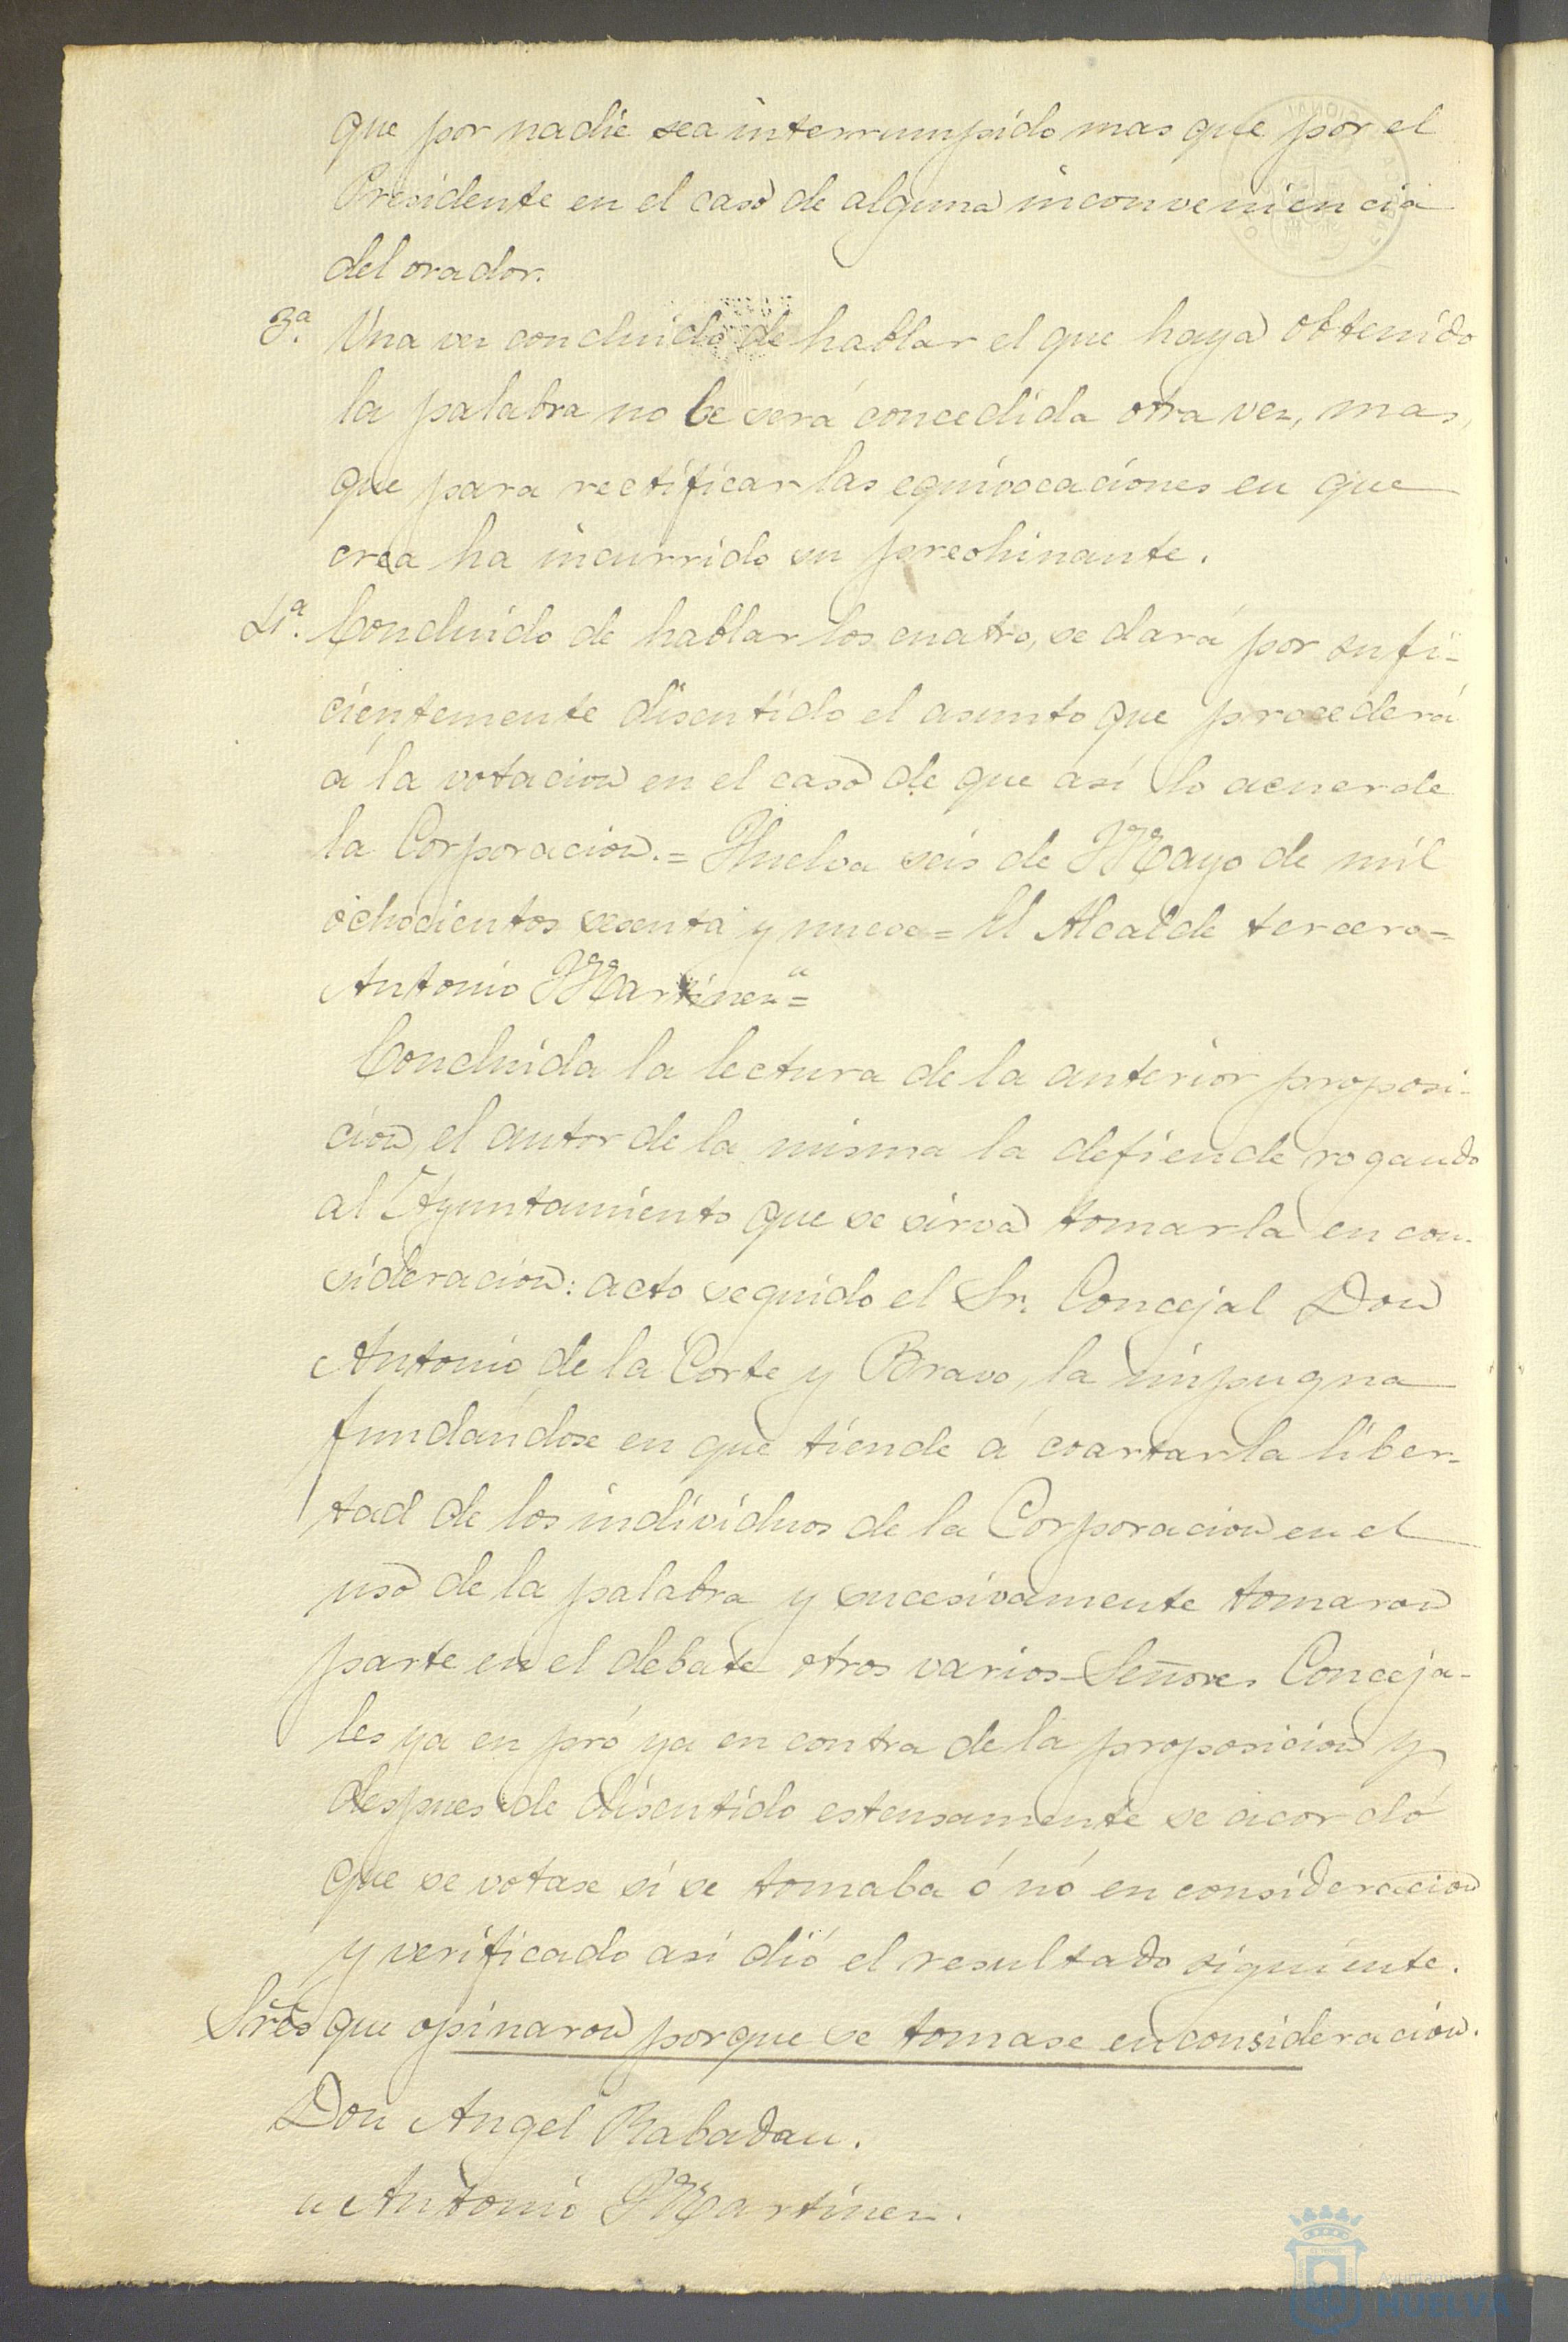 que por nadie sea interrumpido mas que por el
Presidente en el caso de alguna inconveniencia
del orador.
3ª. Una vez concluido de hablar el que haya obtenido
la palabra no le será concedida otra vez, mas,
que para rectificar las equivocaciones en que
crea ha incurrido su preohinante.
4ª. Concluido de hablar los cuatro, se dará por sufi-
cientemente discutido el asunto que procederá
á la votacion en el caso de que así lo acuerde
la Corporacion.= Huelva seis de Mayo de mil
ochocientos sesenta y nueve= El Alcalde tercero=
Antonio Martinez"=
Concluida la lectura de la anterior proposi-
cion, el autor de la misma la defiende rogando
al Ayuntamiento que se sirva tomarla en con-
sideracion: acto seguido el Sr. Concejal Don
Antonio de la Corte y Bravo, la impugna
fundándose en que tiende á coartar la liber-
tad de los individuos de la Corporacion en el
uso de la palabra y sucesivamente tomaron
parte en el debate otros varios Señores Conceja-
les ya en pró ya en contra de la proposicion y
despues de discutido estensamente se acordó
que se votase si se tomaba ó nó en consideracion
y verificado así dió el resultado siguiente.
Sres que opinaron porque se tomase en consideracion.
Don Angel Rabadan.
" Antonio Martinez.
Ayuntamiento
HUELVA